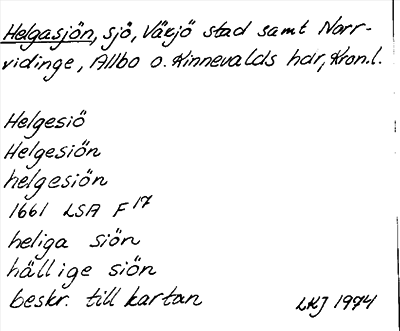 Helgasjön, sjö, Växjö stad samt Norr-
vidinge, Allbo o. Kinnevalds hdr, Kron.l.
Helgesiö
Helgesiön
helgesiön
1661 LSA F 17
heliga siön
hällige siön
beskr. till kartan
LKJ 1974